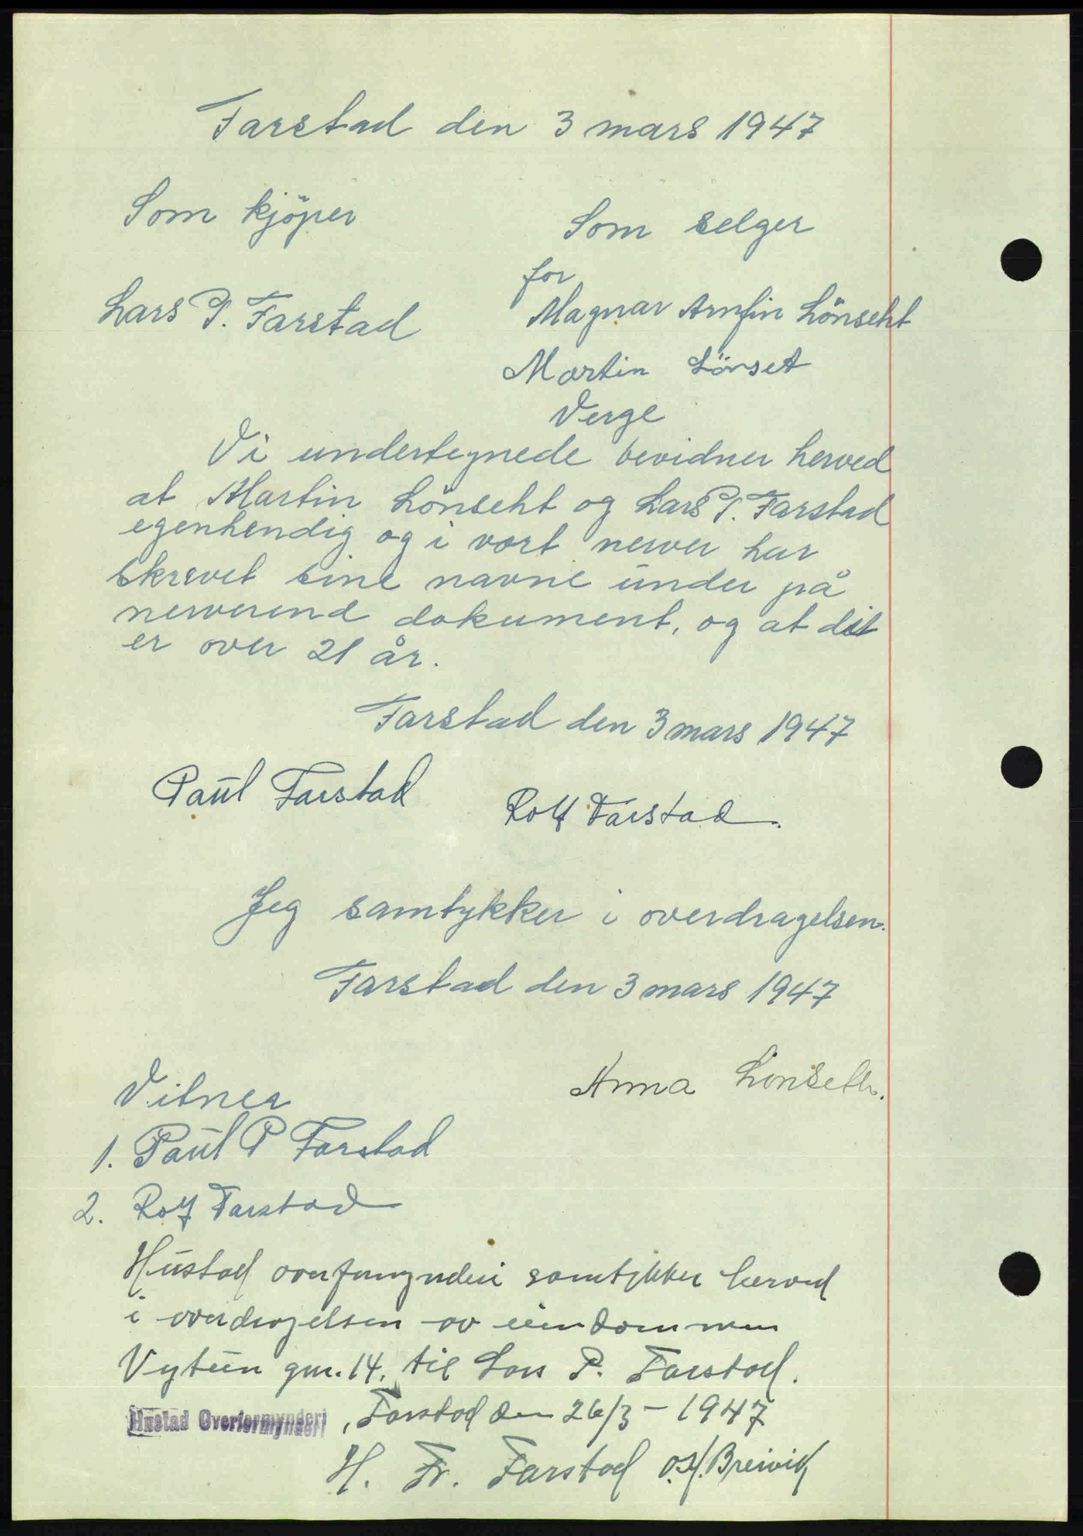 Farstad den 3 mars 1947
Som kjöper
Lars P. Farstad
Som selger
for
Magnar Arnfin Lönseht
Martin Lönset
Verge
Vi undertegnede bevidner herved
at Martin Lönseht og Lars P. Farstad
egenhendig og i vort nerver har
skrevet sine navne under på
nerverend dokument, og at dit
er over 21 år.
Farstad den 3 mars 1947
Paul Farstad
Rolf Farstad.
Jeg samtykker i overdragelsen.
Farstad den 3 mars 1947
Anna Lönseth.
Vitner
1. Paul P Farstad
2. Rolf Farstad
Hustad overformynderi samtykker herved
i overdragelsen av eiendommen
Vytein gnr. 14. til Lars P. Farstad.
Hustad Overformynderi , Farstad den 26/3 - 1947
H. Fr. Farstad O.H. Breivik